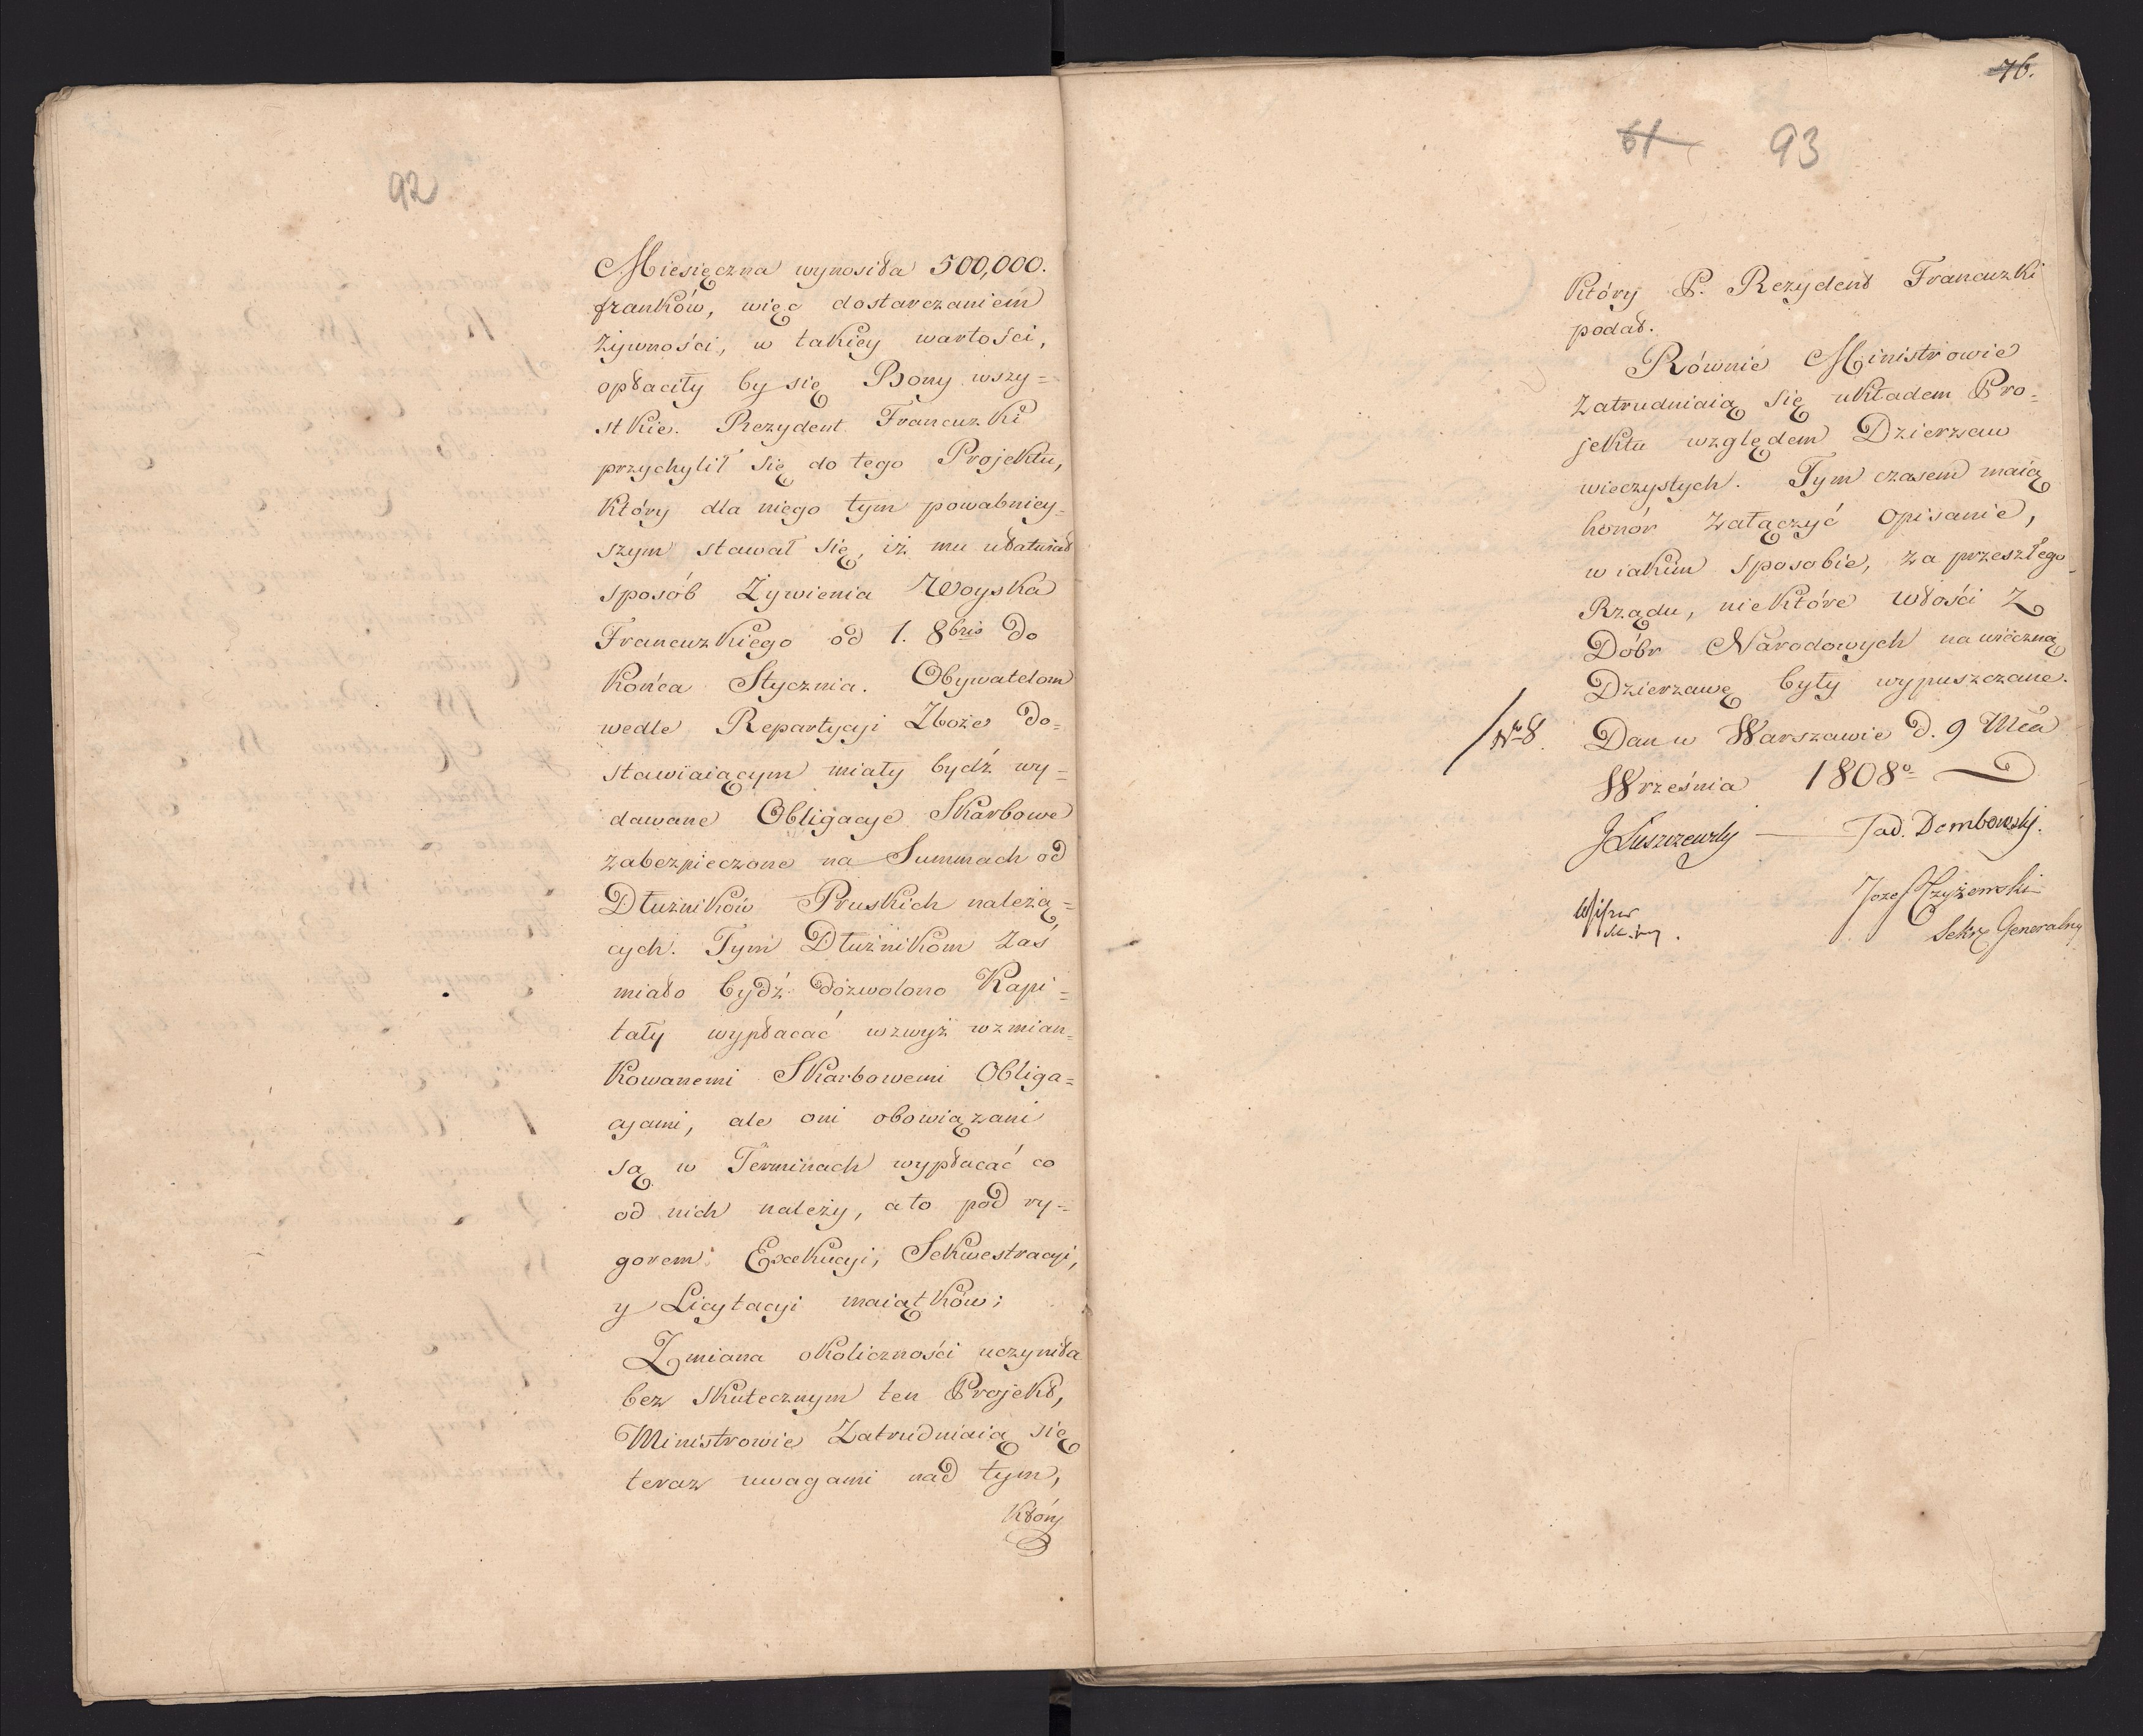 92
Miesięczna wynosiła 500,000.
franków, więc dostarczaniem
żywności, w takiey wartości,
opłaciły by się Bony wszy=
stkie. Rezydent Francuzki
przychylił się do tego Projektu,
który dla niego tym powabniey=
szym stawał się, iż mu ułatwiał
sposób Żywienia Woyska
Francuzkiego od 1. 8bris do
końca Stycznia. Obywatelom
wedle Repartycyi Zboże do=
stawiaiącym miały bydź wy=
dawane Obligacye Skarbowe
zabezpieczone na Summach od
Dłużników Pruskich należą=
cych. Tym Dłużnikom zaś
miało bydź dozwolono Kapi=
tały wypłacać wzwyż wzmian=
kowanemi Skarbowemi Obliga=
cyami, ale oni obowiązani
są w Terminach wypłacać co
od nich należy, a to pod ry=
gorem Exekucyi, Sekwestracyi,
y Licytacyi maiątków;
Zmiana okoliczności uczyniła
bez skutecznym ten Projekt,
Ministrowie Zatrudniaią się
teraz uwagami nad tym,
który
76.
61 93
który P. Rezydent Francuzki
podał.
Równie Ministrowie
zatrudniaią się układem Pro=
jektu względem Dzierzaw
wieczystych. Tym czasem maią
honor załączyć opisanie,
w iakim sposobie, za przeszłego
Rządu, niektóre włości z
Dóbr Narodowych na wieczną
Dzierzawę były wypuszczane.
/ No 8. Dan w Warszawie d. 9 Mca
Września 1808o
J Łuszczewski — Tad. Dembowski.
Jozef Czyżewski
Sekr. Generalny